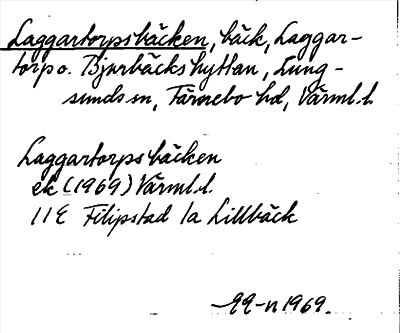 Laggartorpsbäcken, bäck, Laggar-
torp o. Bjurbäckshyttan, Lung-
sunds sn, Färnebo hd, Värml. l.
Laggartorpsbäcken
ek (1969) Värml. l.
11E Filipstad 1a Lillbäck
1969.